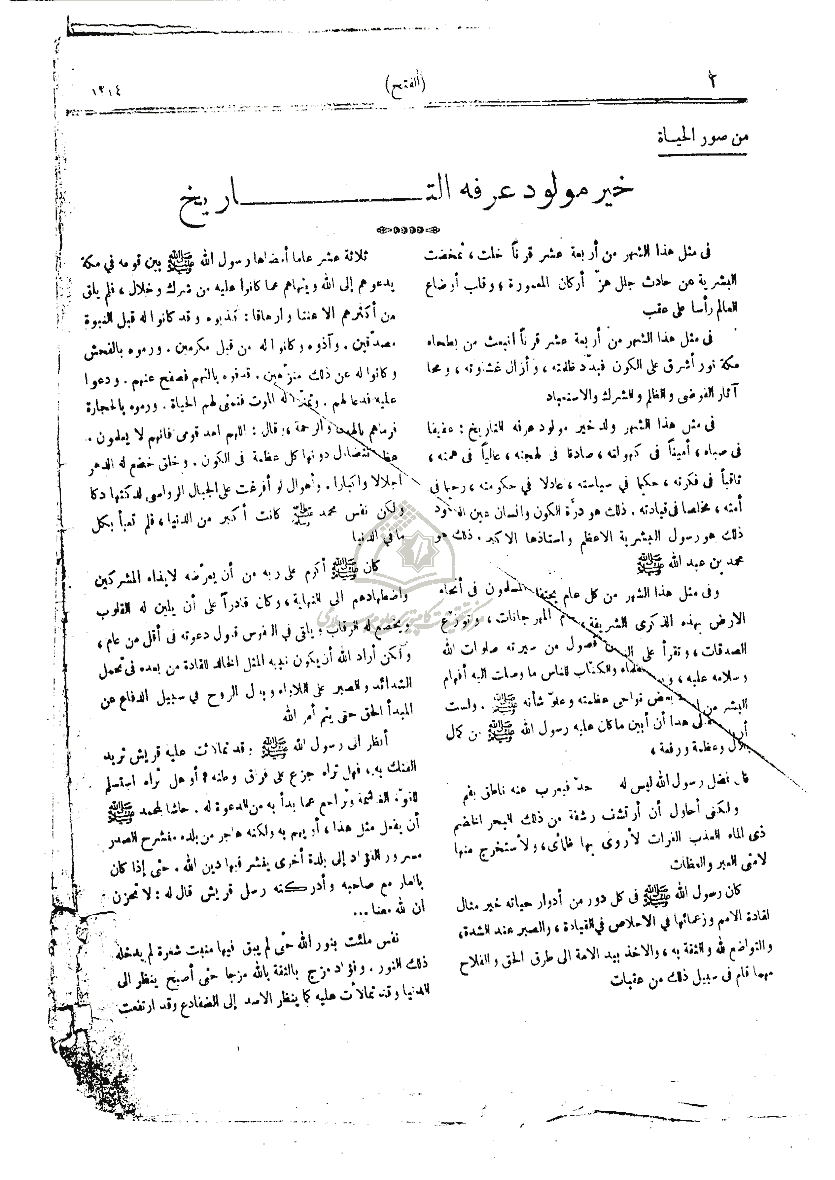 ٢
(الفتح)
١٣١٤
من صور الحياة
خير مولود عرفه التـــــــاريخ
فى مثل هذا الشهر من أربعة عشر قرناً خلت، تمخضت
البشرية عن حادث جلل هزّ أركان المعمورة، وقلب أوضاع
العالم رأسا على عقب
فى مثل هذا الشهر من أربعة عشر قرناً انبعث من بطحاء
مكة نور أشرق على الكون فبدّد ظلمته، وأزال غشاوته، ومحا
آثار الفوضى والظلم والشرك والاستعباد
فى مثل هذا الشهر ولد خير مولود عرفه التاريخ : عفيفا
فى صباه، أمينًا فى كهولته، صادقا فى لهجته، عاليًا فى همته،
ثاقبًا فى فكرته، حكيما فى سياسته، عادلا فى حكومته، رحيما فى
أمته، مخلصا فى قيادته. ذلك هو درّة الكون وانسان عين الوجود
ذلك هو رسول البشرية الاعظم واستاذها الاكبر. ذلك هو
محمد بن عبد الله ﷺ
وفى مثل هذا الشهر من كل عام يحتفل المسلمون فى أنحاء
الارض بهذه الذكرى الشريفة، المهرجانات، وتوزع
الصدقات، وتقرأ على فصول من سيرته صلوات الله
وسلامه عليه، والكتّاب للناس ما وصلت اليه أفهام
البشر من بعض نواحى عظمته وعلوّ شأنه ﷺ. ولست
هذا أن أبين ماكان عليه رسول الله ﷺ من كمال
وعظمة ورفعة،
فان فضل رسول الله ليس له حدّ فيعرب عنه ناطق بفم
ولكنى أحاول أن أرتشف رشفة من ذلك البحر الخضم
ذى الماء العذب الفرات لأروى بها ظمأى، ولأستخرج منها
لامتى العبر والعظات
كان رسول الله ﷺ فى كل دور من أدوار حياته خير مثال
لقادة الامم وزعمائها فى الاخلاص فى القيادة، والصبر عند الشدة،
والتواضع لله والثقة به، والاخذ بيد الامة الى طرق الحق والفلاح
مهما قام فى سبيل ذلك من عقبات
ثلاثة عشر عاما أمضاها رسول الله ﷺ بين قومه فى مكة
يدعوهم إلى الله وينهاهم عما كانوا عليه من شرك وضلال، فلم يلق
من أكثرهم الا عنتا وارهاقا : كذبوه وقد كانوا له قبل النبوة
مصدّقين. وآذوه وكانوا له من قبل مكرمين. ورموه بالفحش
وكانوا له عن ذلك منزّهين. قذفوه بالتهم فصفح عنهم. ودعوا
عليه فدعا لهم. وتمنوا له الموت فتمنى لهم الحياة. ورموه بالحجارة
فرماهم والرحمة، فقال : اللهم اهد قومى فانهم لا يعلمون.
تتضاءل دونها كل عظمة فى الكون. وخلق خضع له الدهر
اجلالا واكبارا. وأهوال لو أفرغت على الجبال الرواسى لدكتها دكا
ولكن نفس محمد ﷺ كانت أكبر من الدنيا، فلم تعبأ بكل
ما فى الدنيا
كان ﷺ أكرم على ربه من أن يعرّضه لايذاء المشركين
واضطهادهم الى النهاية، وكان قادراً على أن يلين له القلوب
ويخضع له الرقاب، يلقى فى النفوس قبول دعوته فى أقل من عام،
ولكن أراد الله أن يكون نبيه المثل الخالد للقادة من بعده فى تحمل
الشدائد والصبر على اللأواء وبذل الروح فى سبيل الدفاع عن
المبدأ الحق حتى يتم أمر الله
أنظر الى رسول الله ﷺ وقد تمالأت عليه قريش تريد
الفتك به، فهل تراه جزع على فراق وطنه ؟ أو هل تراه استسلم
للقوة الغاشمة وتراجع عما بدأ به من الدعوة له. حاشا لمحمد ﷺ
أن يفعل مثل هذا، أو يهم به ولكنه هاجر من بلده منشرح الصدر
مسرور الفؤاد إلى بلدة أخرى ينشر فيها دين الله. حتى إذا كان
بالغار مع صاحبه وأدركته رسل قريش قال له : لا تحزن
ان الله معنا ...
نفس ملئت بنور الله حتى لم يبق فيها منبت شعرة لم يدخله
ذلك النور. وفؤاد مزج بالثقة بالله مزجا حتى أصبح ينظر الى
الدنيا وقد تمالأت عليه كما ينظر الاسد إلى الضفادع وقد ارتفعت